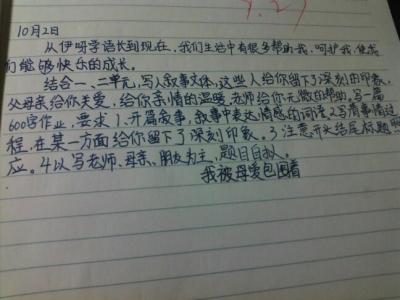 9.29
10月2日
从伊呀学语长到现在,我们生活中有很多帮助我,呵护我,使我
们能够快乐的成长。
结合一、二单元,写人叙事文体,这些人给你留下了深刻的印象。
父母亲给你关爱,给你亲情的温暖,老师给你无微的帮助。写一篇
600字作业,要求1.开篇叙事,叙事中表达情感的词语。2.写清事情过
程,在某一方面给你留下了深刻印象。3.注意开头结尾标题
应。4.以写老师、母亲、朋友为主,题目自拟。
我被母爱包围着